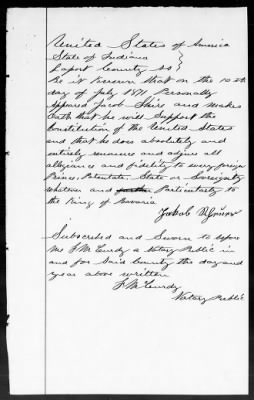 United States of America
State of Indiana
Laport County SS
Be it Known that on the 10th
day of July 1871 Personally
appeared Jacob and makes
Oath that he will Support the
Constitution of the United States
and that he does absolutely and
entirely renounce and adjure all
allegiance and fidelity to every foreign
Prince, Potentate, State or Sovereignty
whatever and Particularly to
the King of Bavaria
Jakob
Subscribed and Sworn to before
me a Notary Public in
and for Said County the day and
year above written
Notary Public